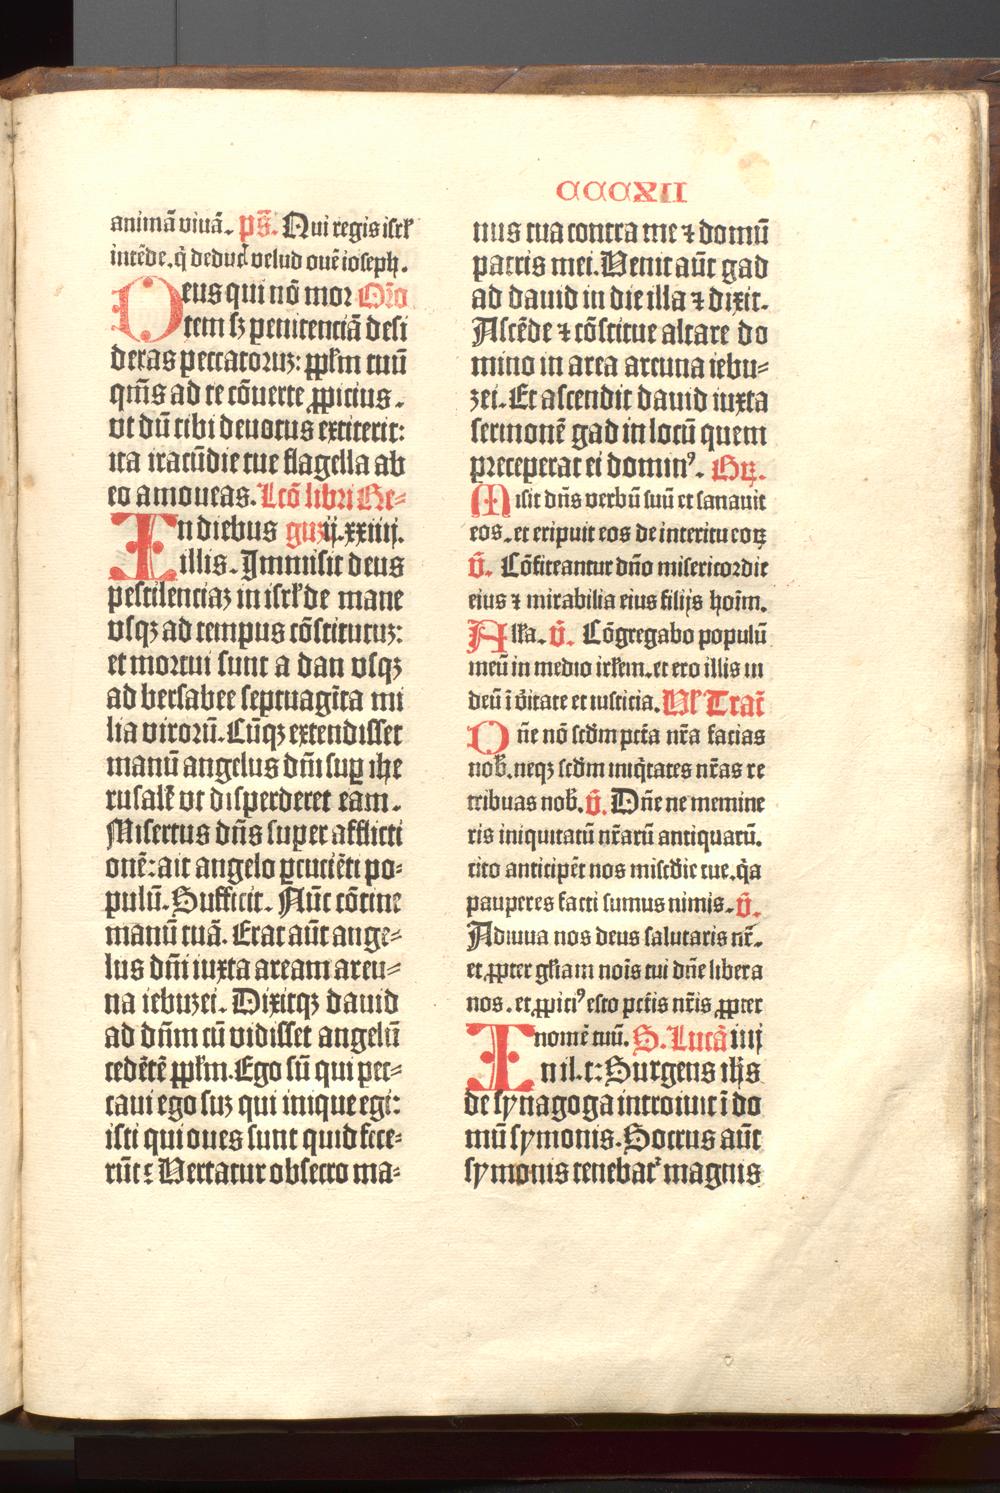 CCCXII
animā viuā. p̄s. Qui regis isrł
intēde. q̄ deduc̄ velud ouē ioseph.
Deus qui nō mor Orō
tem sꝫ penitenciā desi
deras peccatoruꝫ: ppłm tuū
qm̄s ad te cōuerte ꝓpicius.
vt dū tibi deuotus extiterit:
ita iracūdie tue flagella ab
eo amoueas. Lcō libri Re-
In diebus guꝫ ij. xxiiij.
illis. Immisit deus
pestilenciaꝫ in isrł de mane
vsqꝫ ad tempus cōstitutuꝫ:
et mortui sunt a dan vsqꝫ
ad bersabee septuagīta mi
lia virorū. Cūqꝫ extendisset
manū angelus dn̄i suꝑ ihe
rusalē vt disperderet eam.
Misertus dn̄s super afflicti
onē: ait angelo ꝑcuciēti po-
pulū. Sufficit. Nūc cōtine
manū tuā. Erat aūt ange-
lus dn̄i iuxta aream areu-
na iebuzei. Dixitqꝫ dauid
ad dn̄m cū vidisset angelū
cedētē ppłm. Ego sū qui pec-
caui ego suꝫ qui inique egi:
isti qui oues sunt quid fece-
rūt: Vertatur obsecro ma-
nus tua contra me ⁊ domū
patris mei. Venit aūt gad
ad dauid in die illa ⁊ dixit.
Ascēde ⁊ cōstitue altare do
mino in area areuna iebu-
zei. Et ascendit dauid iuxta
sermonē gad in locū quem
preceperat ei dominꝰ. Gr̄.
Misit dn̄s verbū suū et sanauit
eos. et eripuit eos de interitu eoꝝ
v̄. Cōfiteantur dn̄o misericordie
eius ⁊ mirabilia eius filijs hoīm.
Alła. v̄. Cōgregabo populū
meū in medio irłem. et ero illis in
deū ī v̄itate et iusticia. Vł Tract̄
Dn̄e nō scd̄m pct̄a nr̄a facias
nob̄. neqꝫ scd̄m iniq̄tates nr̄as re
tribuas nob̄. v̄. Dn̄e ne memine
ris iniquitatū nr̄arū antiquarū.
cito anticipēt nos mis̄cdie tue. q̄a
pauperes facti sumus nimis. v̄.
Adiuua nos deus salutaris nr̄.
et ꝓpter głiam nois̄ tui dn̄e libera
nos. et ꝓpiciꝰ esto pct̄is nr̄is ꝓpter
nomē tuū. S. Lucā iiij
In il. t: Surgens ih̄s
de synagoga introiuit ī do
mū symonis. Socrus aūt
symonis tenebat᷑ magnis